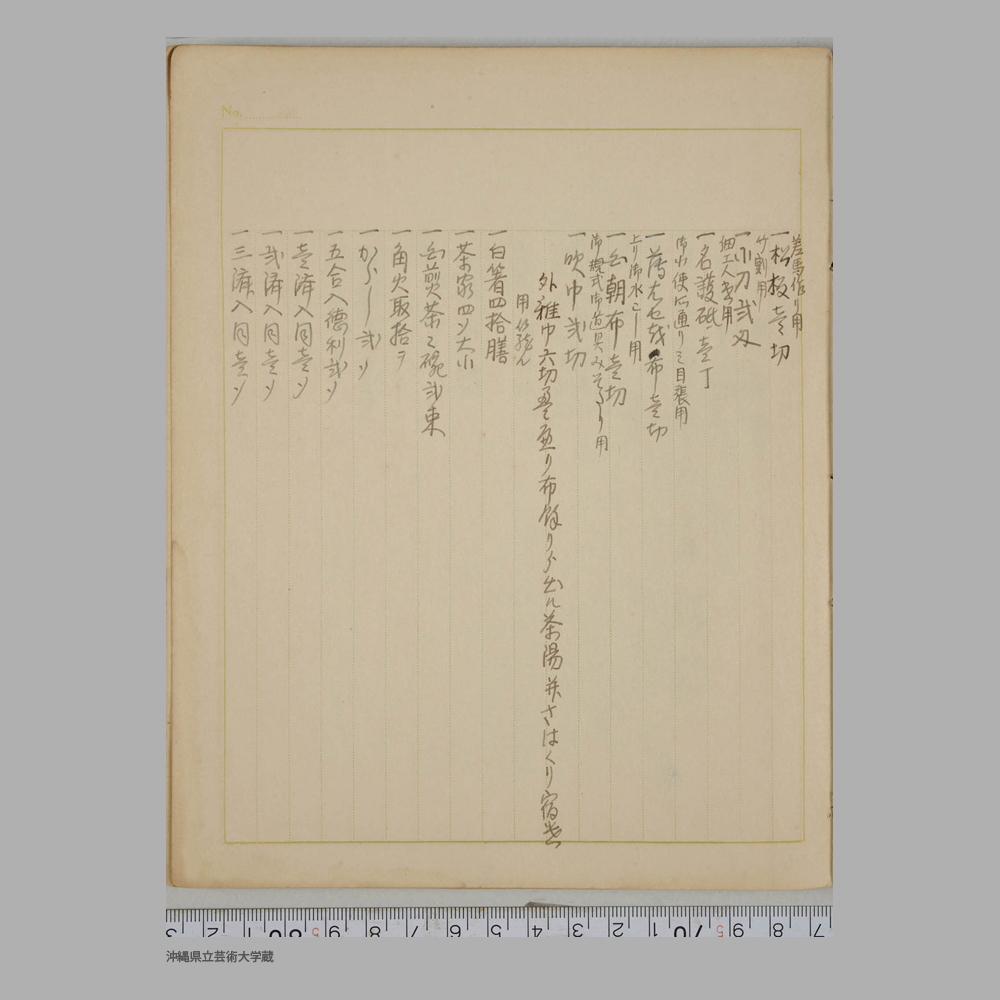 No.
差馬作り用
一松板壱切
竹割用
一小刀弐刄
細工人 用
一名護砥壱丁
御小使所通りミ目張用
一薄 布壱切
上り御水こし用
一白朝布壱切
御規式御道具みそ り用
一吹巾弐切
外雑巾六切 り布餘りゟ出ル茶湯并さはくり宿
用
一白箸四拾膳
一茶家四ツ大小
一白煎茶ミ碗弐束
一角火取拾ヲ
一からし弐ツ
一五合入徳利弐ツ
一壱沸入同壱ツ
一弐沸入同壱ツ
一三沸入同壱ツ
沖縄県立芸術大学蔵